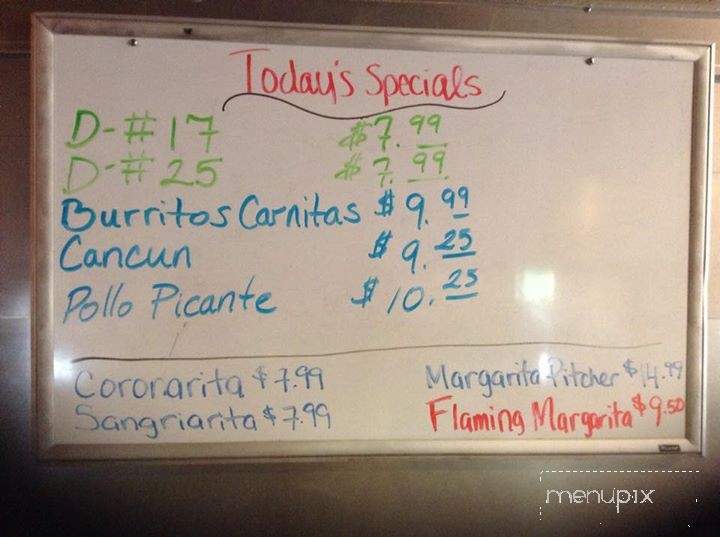 Today's Specials
D-#17 $7.99
D-#25 $7.99
Burritos Carnitas $9.99
Cancun $9.25
Pollo Picante $10.25
Coronarita $7.99
Sangriarita $7.99
Margarita Pitcher $14.99
Flaming Margarita $9.50
menupix